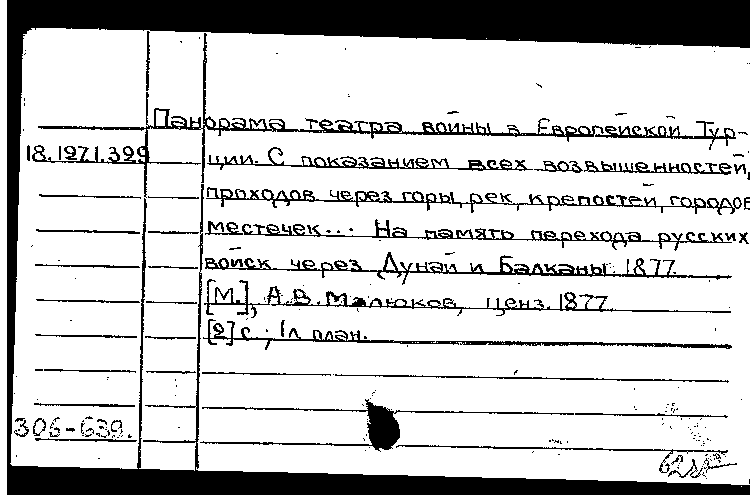 Панорама театра войны в Европейской Тур-
18.127.1.329 ции. С показанием всех возвышенностей,
проходов через горы, рек, крепостей, городов
местечек... На память перехода русских
войск через Дунай и Балканы. 1877.
[М.], А.В. Малюков, ценз. 1877.
[2] с.; 1 л план.
306-639.